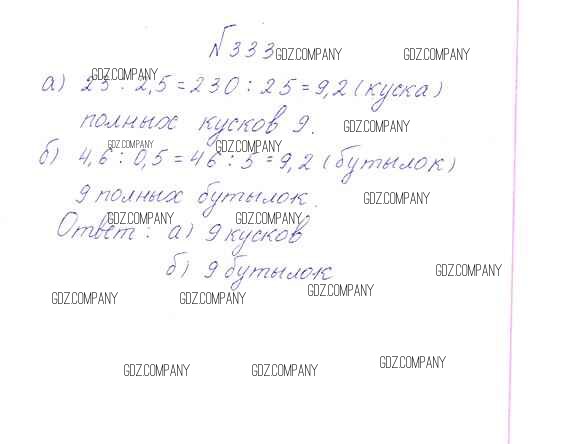 №333 GDZ.COMPANY GDZ.COMPANY
GDZ.COMPANY
а) 23 : 2,5 = 230 : 25 = 9,2 (куска)
полных кусков 9. GDZ.COMPANY
GDZ.COMPANY GDZ.COMPANY
б) 4,6 : 0,5 = 46 : 5 = 9,2 (бутылок)
9 полных бутылок. GDZ.COMPANY
GDZ.COMPANY GDZ.COMPANY
Ответ: а) 9 кусков
б) 9 бутылок GDZ.COMPANY
GDZ.COMPANY GDZ.COMPANY GDZ.COMPANY
GDZ.COMPANY GDZ.COMPANY GDZ.COMPANY